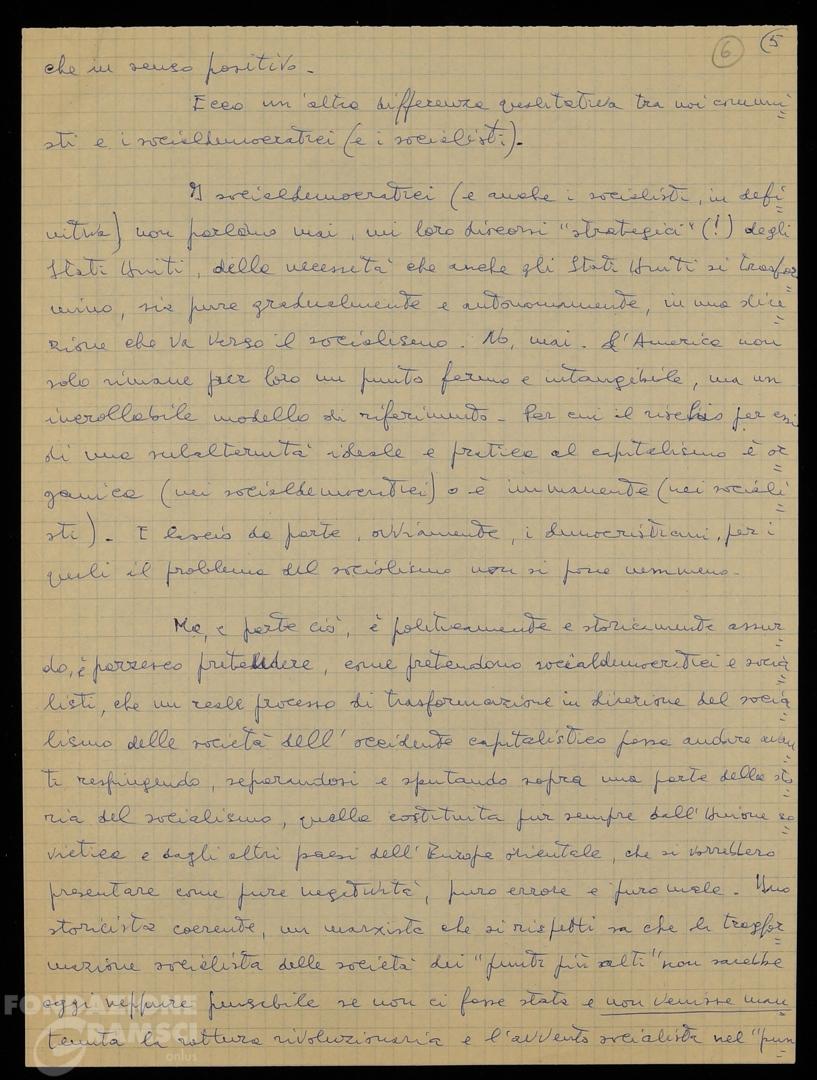 6
5
che in senso positivo.
Ecco un'altra differenza qualitativa tra noi comuni=
sti e i socialdemocratici (e i socialisti).
I socialdemocratici (e anche i socialisti, in defi=
nitiva) non parlano mai, nei loro discorsi "strategici" (!) degli
Stati Uniti, della necessità che anche gli Stati Uniti si trasfor=
mino, sia pure gradualmente e autonomamente, in una dire=
zione che va verso il socialismo. No, mai. L'America non
solo rimane per loro un punto fermo e intangibile, ma un
incrollabile modello di riferimento. Per cui il rischio per essi
di una subalternità ideale e pratica al capitalismo è or=
ganica (nei socialdemocratici) o è immanente (nei sociali=
sti). E lascio da parte, ovviamente, i democristiani, per i
quali il problema del socialismo non si pone nemmeno.
Ma, a parte ciò, è politicamente e storicamente assur=
do, è pazzesco pretendere, come pretendono socialdemocratici e socia=
listi, che un reale processo di trasformazione in direzione del socia=
lismo delle società dell'occidente capitalistico possa andare avan=
ti respingendo, separandosi e sputando sopra una parte della sto=
ria del socialismo, quella costituita pur sempre dall'Unione so=
vietica e dagli altri paesi dell'Europa orientale, che si vorrebbero
presentare come pura negatività, puro errore e puro male. Uno
storicista coerente, un marxista che si rispetti sa che la trasfor=
mazione socialista delle società dei "punti più alti" non sarebbe
oggi neppure pensabile se non ci fosse stata e non venisse man=
tenuta la rottura rivoluzionaria e l'avvento socialista nel "pun=
FONDAZIONE
GRAMSCI
onlus